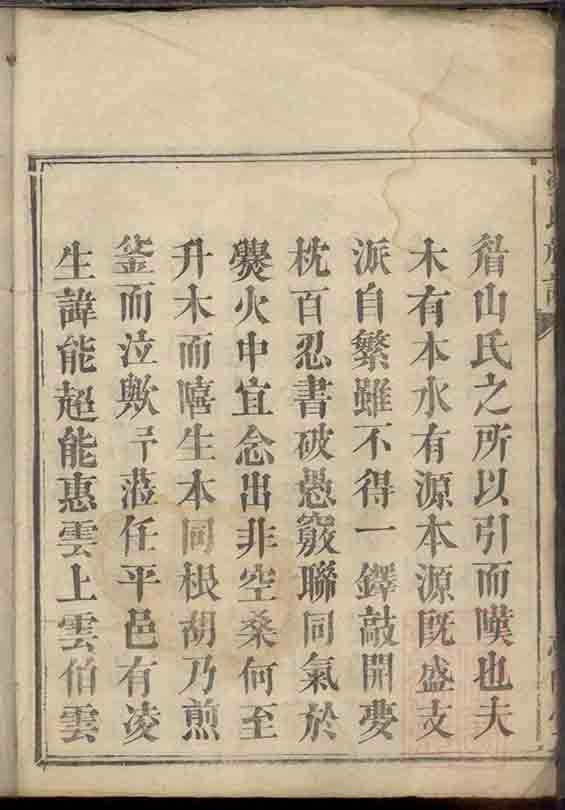 眉山氏之所以引而嘆也夫
木有本水有源本源旣盛支
派自繁雖不得一鐸敲開夢
枕百忍書破愚竅聯同氣於
爨火中宜念出非空桑何至
升木而嘻生本同根胡乃煎
釜而泣歟予蒞任平邑有凌
生諱能超能惠雲上雲伯雲